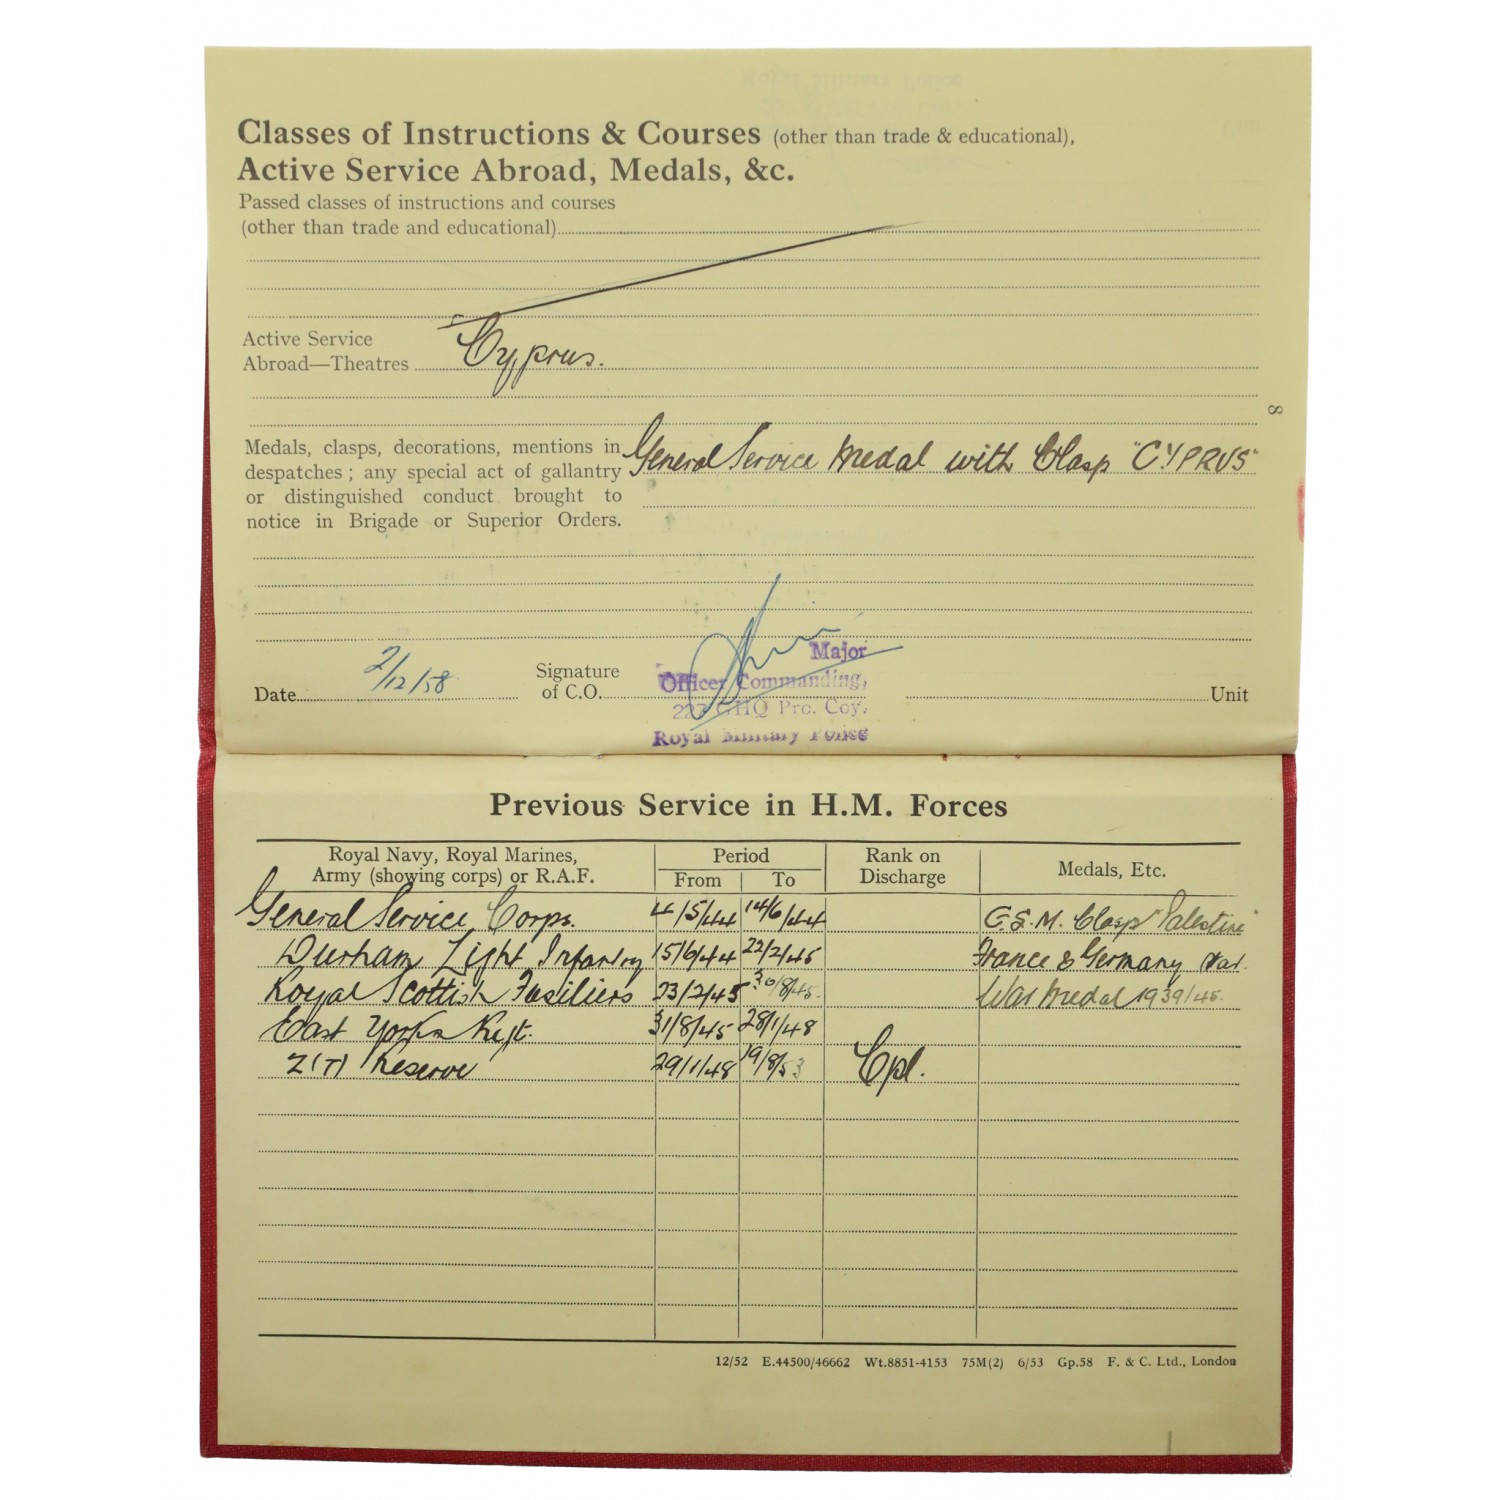 Classes of Instructions & Courses (other than trade & educational),
Active Service Abroad, Medals, &c.
Passed classes of instructions and courses
(other than trade and educational)
Active Service
Abroad—Theatres Cyprus.
8
Medals, clasps, decorations, mentions in General Service Medal with Clasp "CYPRUS"
despatches; any special act of gallantry
or distinguished conduct brought to
notice in Brigade or Superior Orders.
Date 2/12/58 Signature of C.O. Unit
Major
Officer Commanding,
227 GHQ Pro. Coy.
Royal Military Police
Previous Service in H.M. Forces
Royal Navy, Royal Marines, Army (showing corps) or R.A.F. Period From To Rank on Discharge Medals, Etc.
General Service Corps. 4/5/44 14/6/44 G.S.M. Clasp "Palestine"
Durham Light Infantry 15/6/44 22/2/45 France & Germany Star.
Royal Scottish Fusiliers 23/2/45 30/8/45. War Medal 1939/45.
East Yorks Regt. 31/8/45 28/1/48
Z(T) Reserve 29/1/48 19/8/53 Cpl.
12/52 E.44500/46662 Wt.8851-4153 75M(2) 6/53 Gp.58 F. & C. Ltd., London